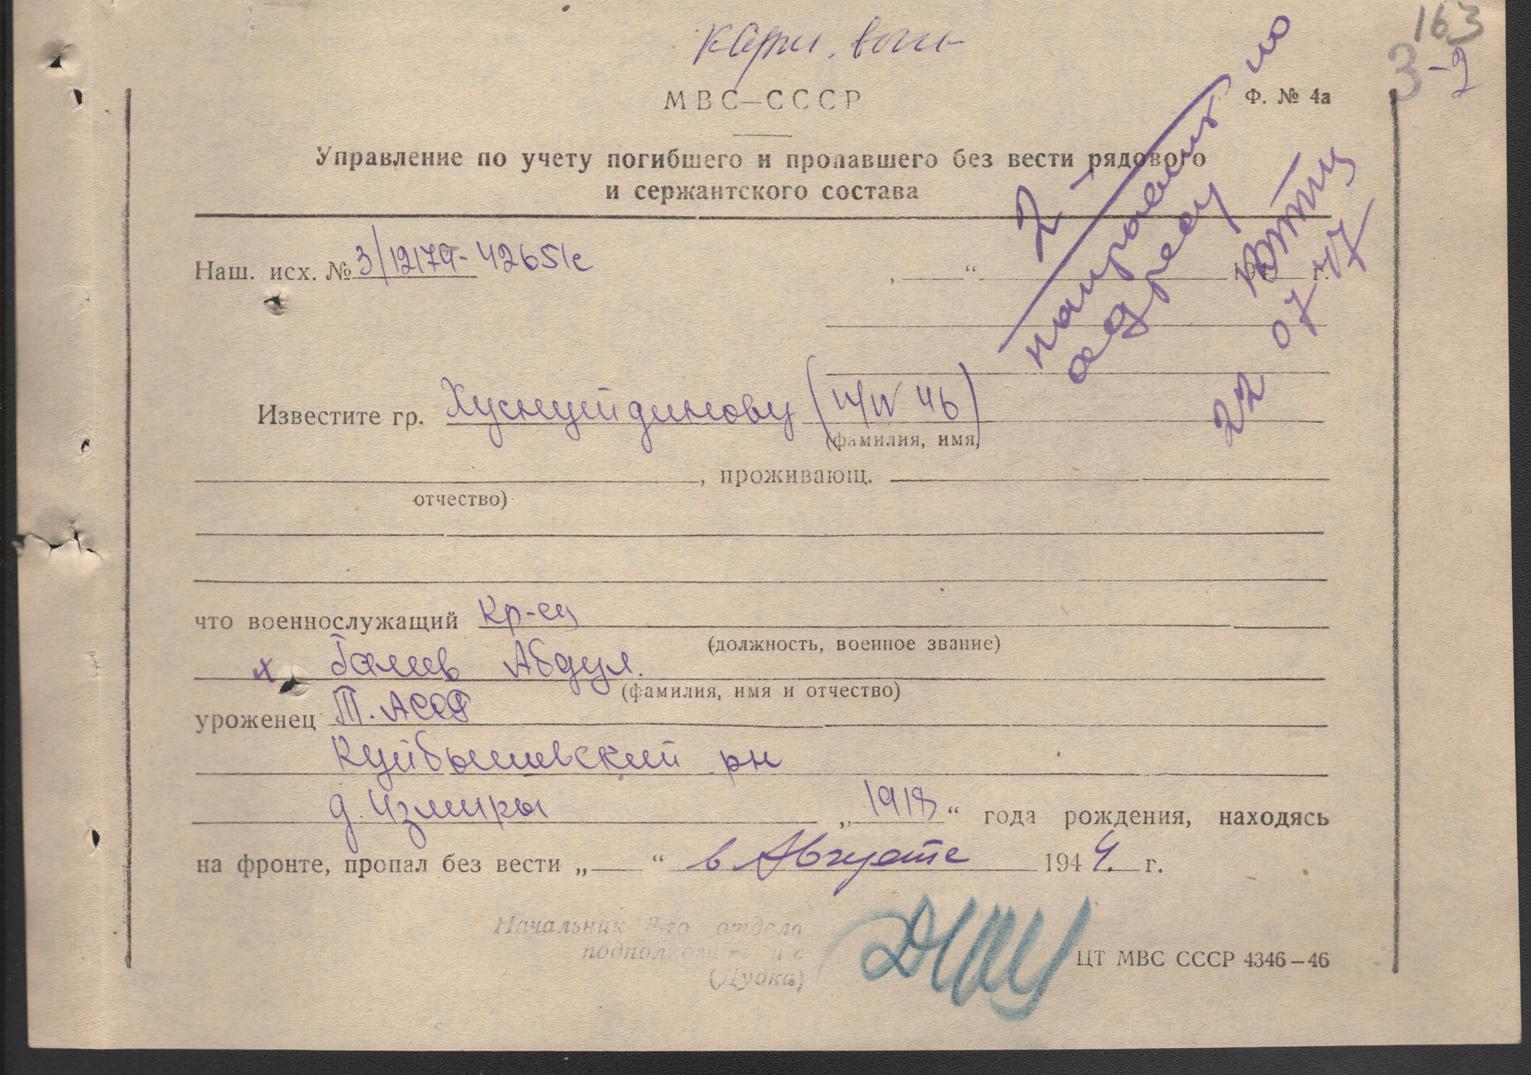 163
3-2
МВС—СССР
Ф. № 4а
Управление по учету погибшего и пропавшего без вести рядового
и сержантского состава
2
направлено по
адресу
22 07 47
Наш. исх. № 3/12179-4265/с „ “ 19 г.
Известите гр. Хуснуйдинову (IV 46)
(фамилия, имя,
, проживающ.
отчество)
что военнослужащий Кр-ец
(должность, военное звание)
х Галиев Абдул.
(фамилия, имя и отчество)
уроженец Т.АССР
Куйбышевский рн
д. Измири „1918“ года рождения, находясь
на фронте, пропал без вести „ “ в Августе 1944. г.
Начальник 3-го отдела
подполковник и с
(Дудка)
ЦТ МВС СССР 4346—46